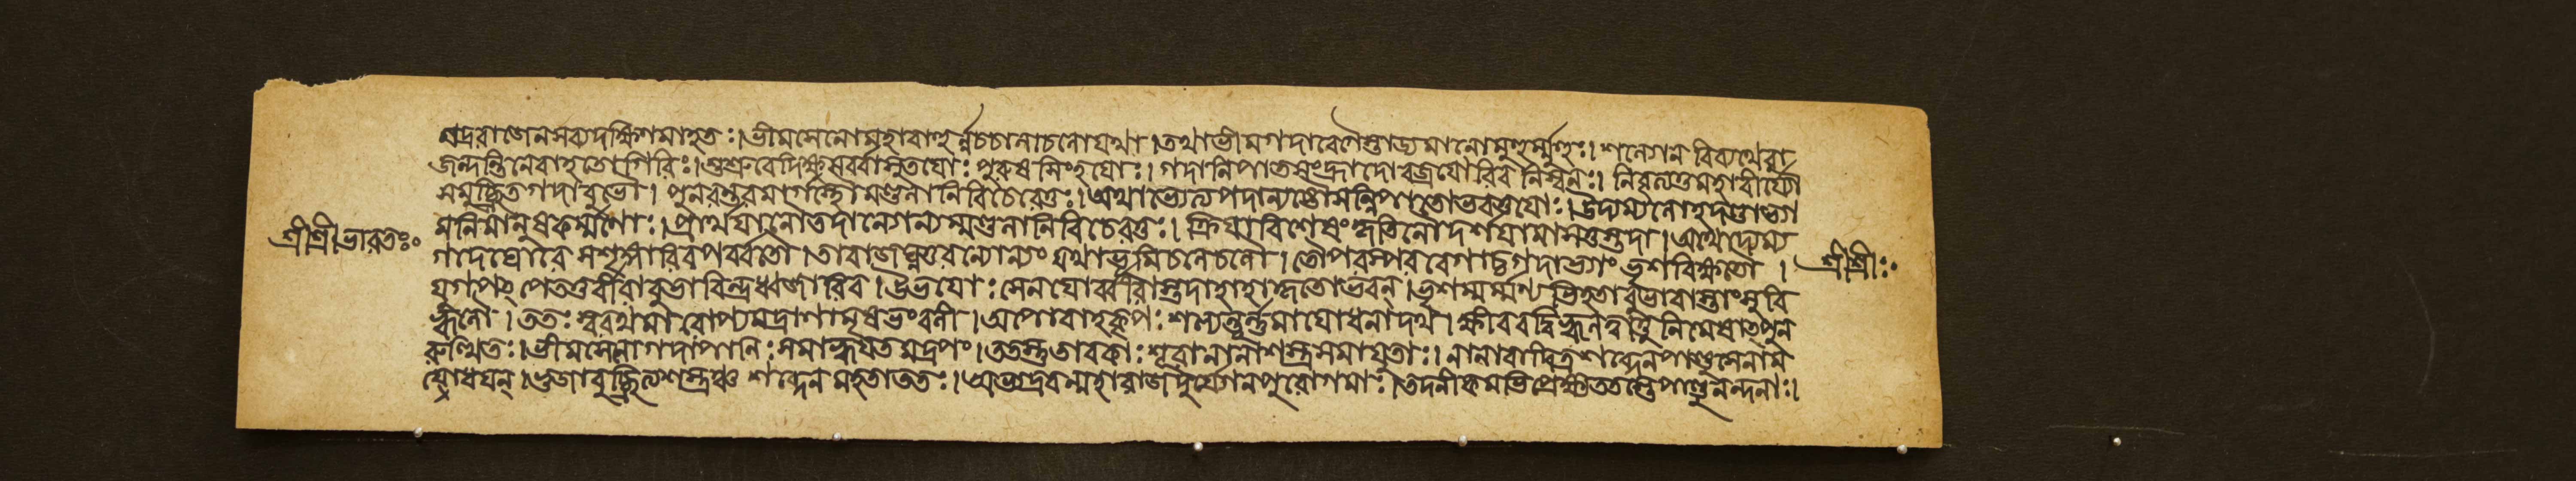 মদ্ররাজেন সব্যদক্ষিণমাহতঃ। ভীমসেনো মহাবাহুর্ন্ন চচালাচলো যথা। তথা ভীমগদাবেগৈস্তাড্যমানো মুহুর্ম্মুহুঃ। শল্যো ন বিব্যথে রা
জন্দন্তিনেবাহতো গিরিঃ। শুশ্রুবে দিক্ষু সর্ব্বাসু তয়োঃ পুরুষসিংহয়োঃ। গদানিপাতসংহ্রাদো বজ্রয়োরিব নিস্বনঃ। নিবৃত্য তু মহাবীর্য্যৌ
সমুচ্ছ্রিতগদাবুভৌ। পুনরন্তরমার্গস্থৌ মণ্ডলানি বিচেরতুঃ। অথাভ্যেত্য পদান্যষ্টৌ সন্নিপাতোভবত্তয়োঃ। উদ্যম্য লোহদণ্ডাভ্যা
মতিমানুষকর্ম্মণোঃ। প্রার্থয়ানৌ তদান্যোন্যম্মণ্ডলানি বিচেরতুঃ। ক্রিয়াবিশেষং কৃতিনৌ দর্শয়ামাসতুস্তদা। অথোদ্যম্য
শ্রীশ্রীভারতঃ॰
গদে ঘোরে সশৃঙ্গাবিব পর্ব্বতৌ। তাবাজঘ্নতুরন্যোন্যং যথা ভূমিচলেচলৌ। তৌ পরস্পরবেগাচ্চ গদাভ্যাং ভৃশবিক্ষতৌ।
শ্রীশ্রীঃ॰
যুগপৎ পেততুর্বীরাবুভাবিন্দ্রধ্বজাবিব। উভয়োঃ সেনয়োর্ব্বীরাস্তদা হাহাকৃতোভবন্। ভৃশম্মর্ম্মণ্যভিহতাবুভাবাস্তাং সুবি
হ্বলৌ। ততঃ স্বরথমারোপ্য মদ্রাণামৃষভং বলী। অপোবাহ কৃপঃ শল্যন্তূর্ন্তমায়োধনাদথ। ক্ষীববদ্বিহ্বলত্বাত্তু নিমেষাৎ পুন
রুত্থিতঃ। ভীমসেনো গদাপাণিঃ সমাহ্বয়ত মদ্রপং। ততস্তু তাবকাঃ শূরা নানাশস্ত্রসমাযুতাঃ। নানাবাদিত্রশব্দেন পাণ্ডুসেনাম
য়োধয়ন্। ভুজাবুচ্ছ্রিত্য শস্ত্রঞ্চ শব্দেন মহতা ততঃ। অভ্যদ্রবন্মহারাজ দুর্য্যোধনপুরোগমাঃ। তদনীকমভিপ্রেক্ষ্য ততস্তে পাণ্ডুনন্দনাঃ।